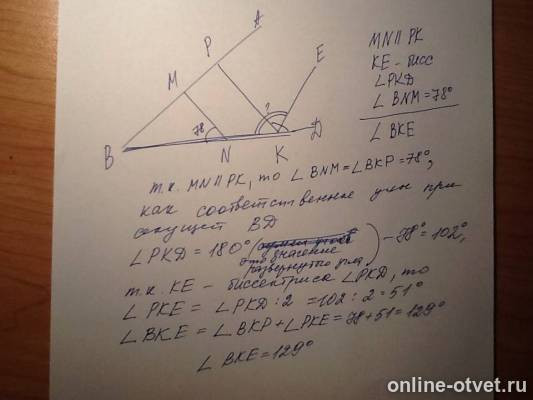 A
P
E
M
?
78
D
B
N
K
MN || PK
KE - бисс
∠PKD
∠BNM = 78°
∠BKE
т.к. MN || PK, то ∠BNM = ∠BKP = 78°,
как соответственные углы при
секущей BD
∠PKD = 180° (это значение
развернутого угла) - 78° = 102°,
т.к. KE - биссектриса ∠PKD, то
∠PKE = ∠PKD : 2 = 102 : 2 = 51°
∠BKE = ∠BKP + ∠PKE = 78 + 51 = 129°
∠BKE = 129°
online-otvet.ru